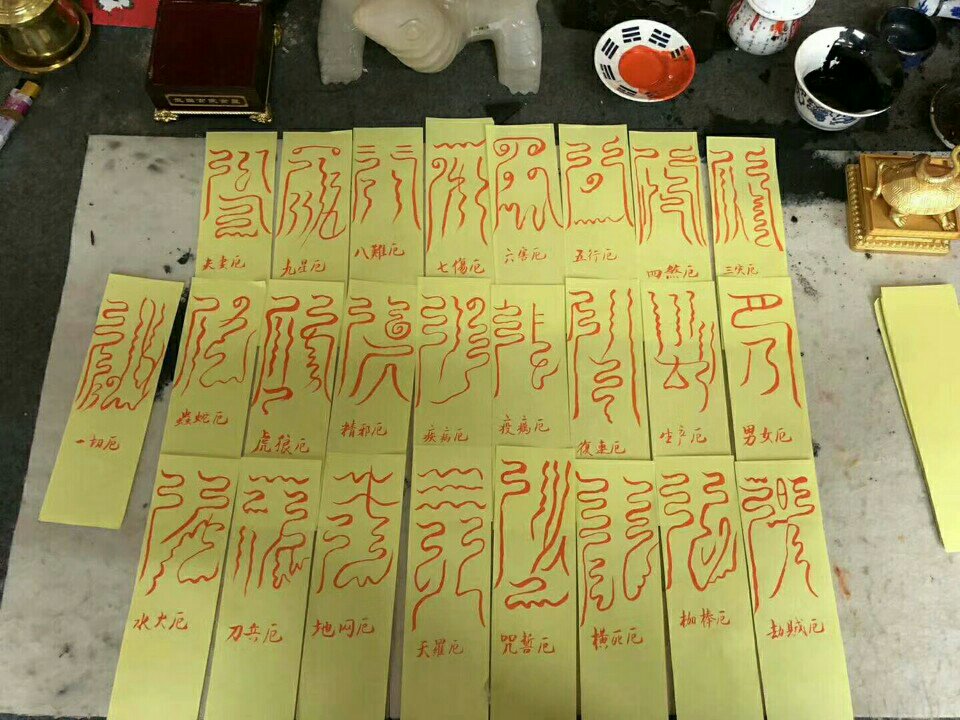 夫妻厄
九星厄
八難厄
七傷厄
六害厄
五行厄
四煞厄
三灾厄
一切厄
蟲蛇厄
虎狼厄
精邪厄
疾病厄
疫病厄
復連厄
生产厄
男女厄
水火厄
刀兵厄
地网厄
天羅厄
咒誓厄
橫死厄
枷棒厄
劫賊厄